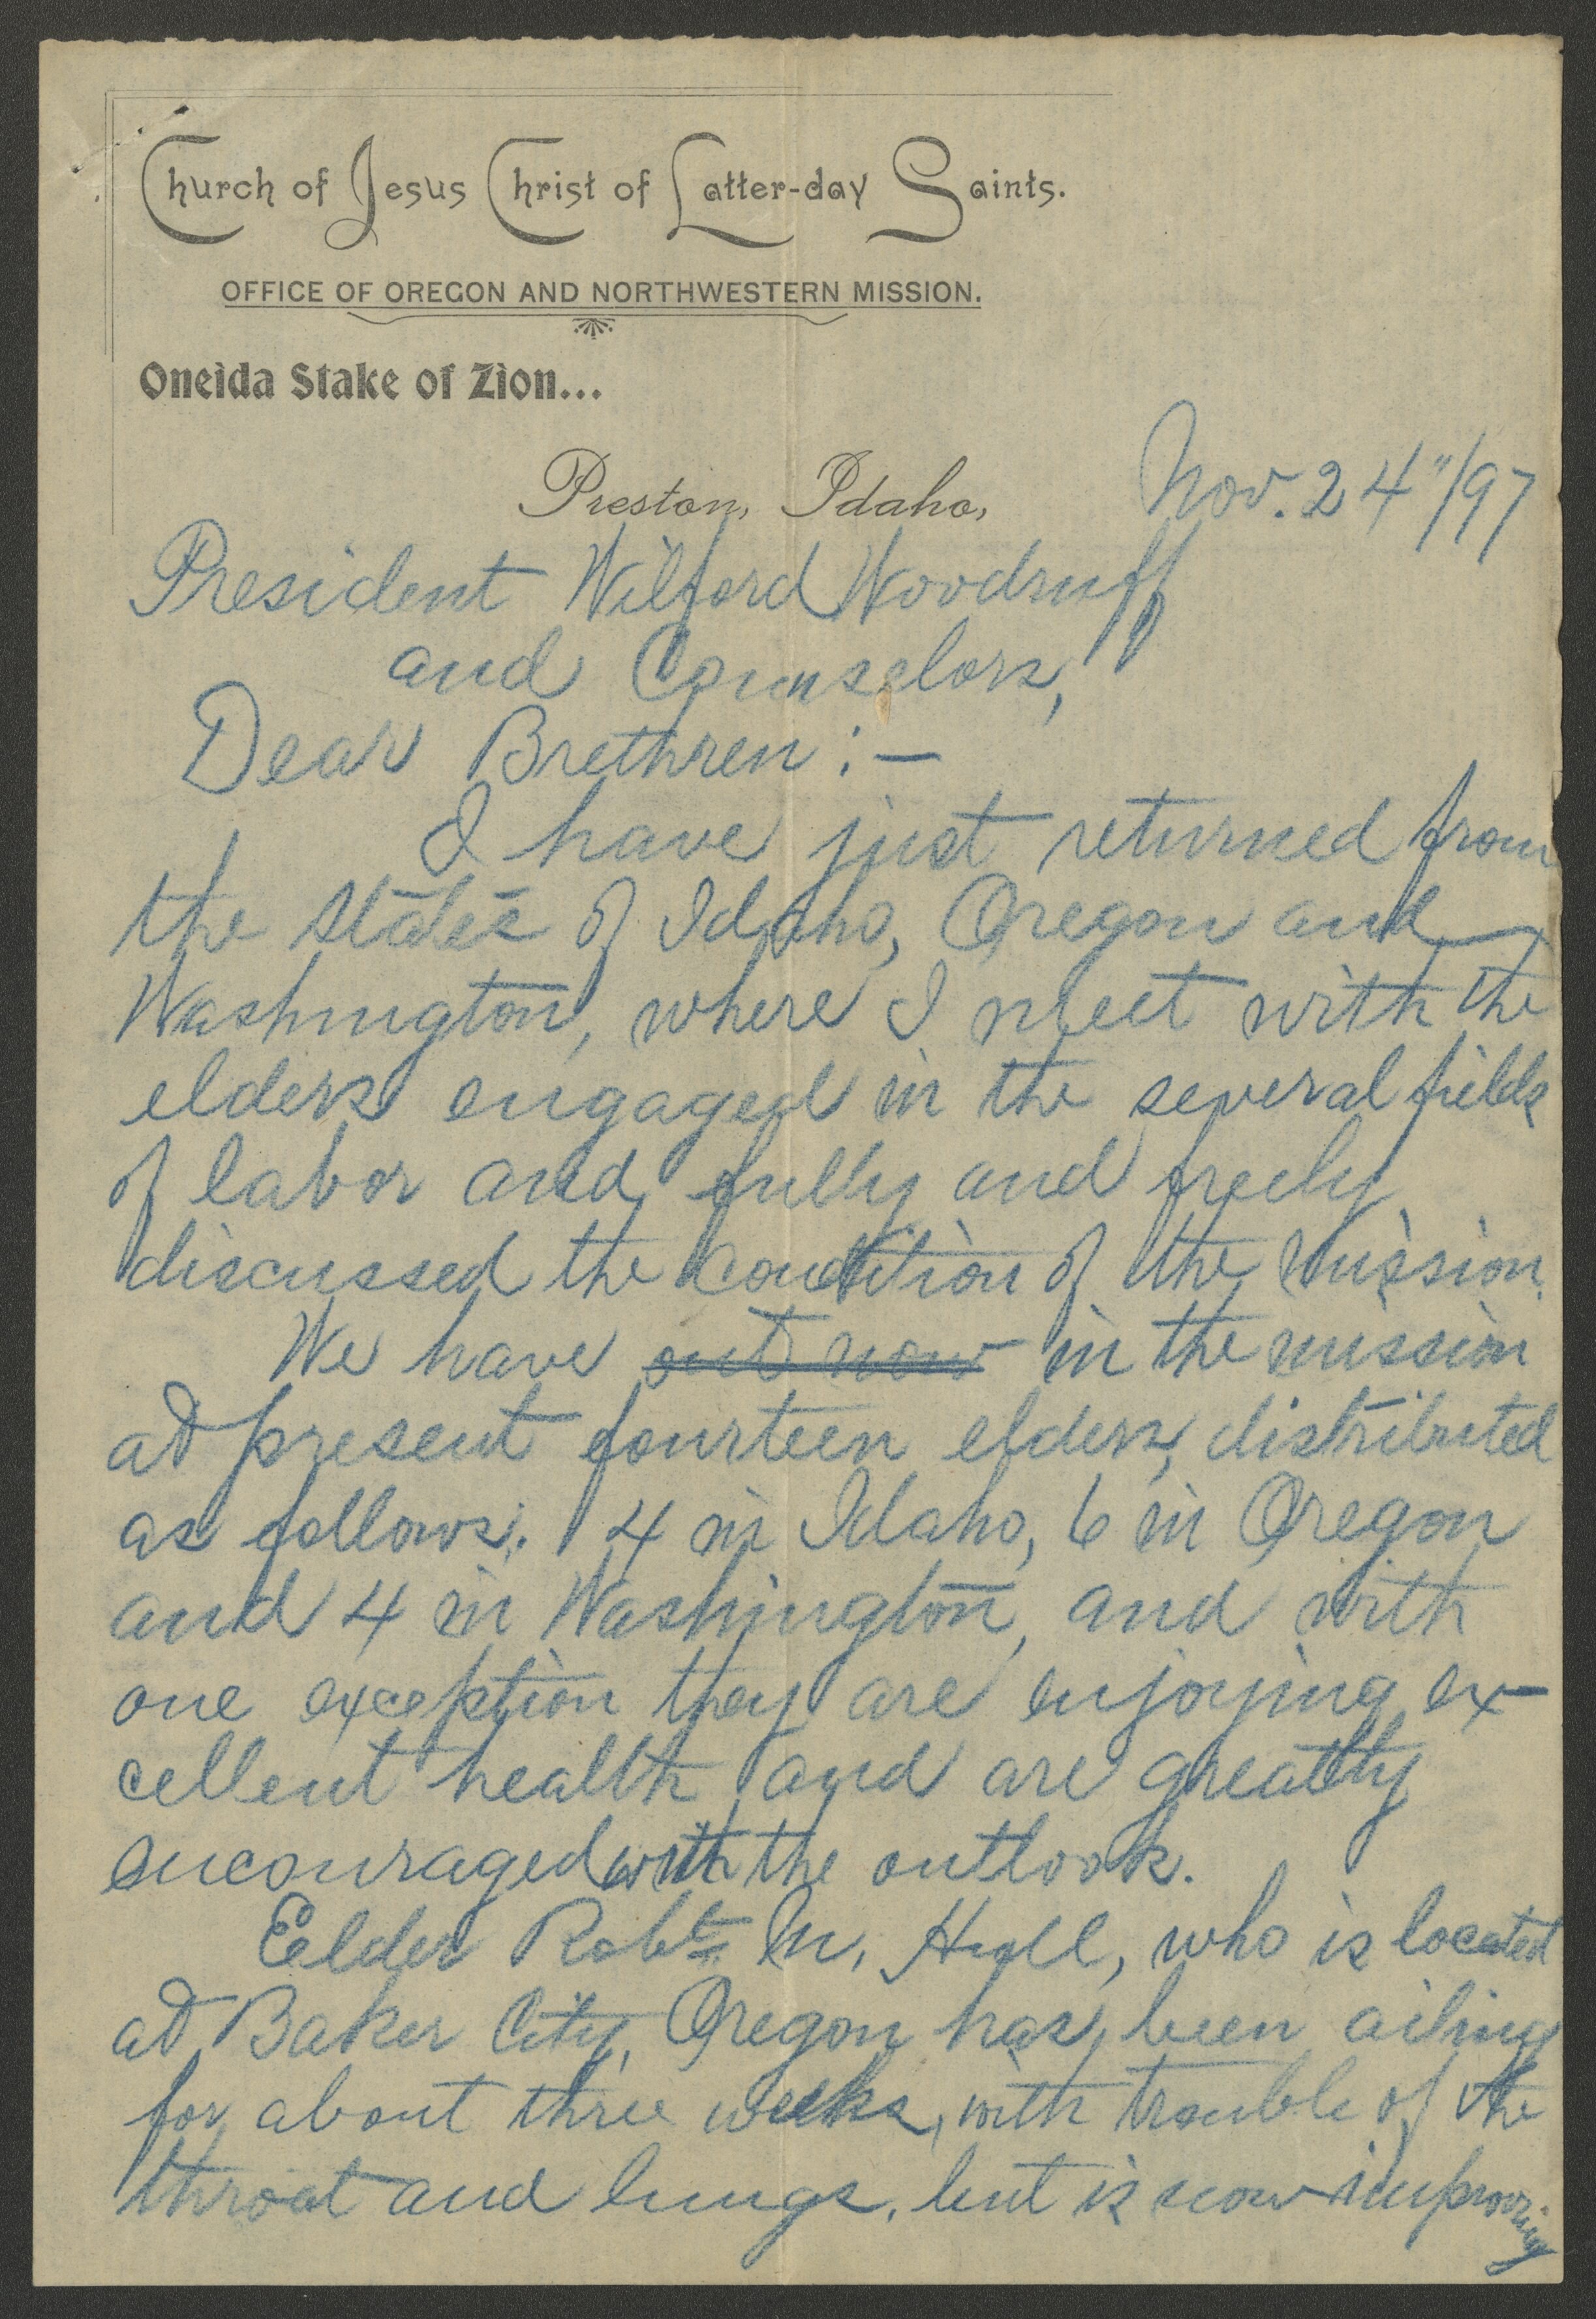 Church of Jesus Christ of Latter-day Saints.
OFFICE OF OREGON AND NORTHWESTERN MISSION.
Oneida Stake of Zion...
Preston, Idaho, Nov. 24"/97
President Wilford Woodruff
and Counselors,
Dear Brethren:—
I have just returned from
the states of Idaho, Oregon and
Washington, where I meet with the
elders engaged in the several fields
of labor and fully and freely
discussed the condition of the mission.
We have out now in the mission
at present fourteen elders, distributed
as follows: 4 in Idaho, 6 in Oregon
and 4 in Washington, and with
one exception they are enjoying ex-
cellent health and are greatly
encouraged with the outlook.
Elder Robt. M. Hull, who is located
at Baker City, Oregon has been ailing
for about three weeks, with trouble of the
throat and lungs, but is now improving